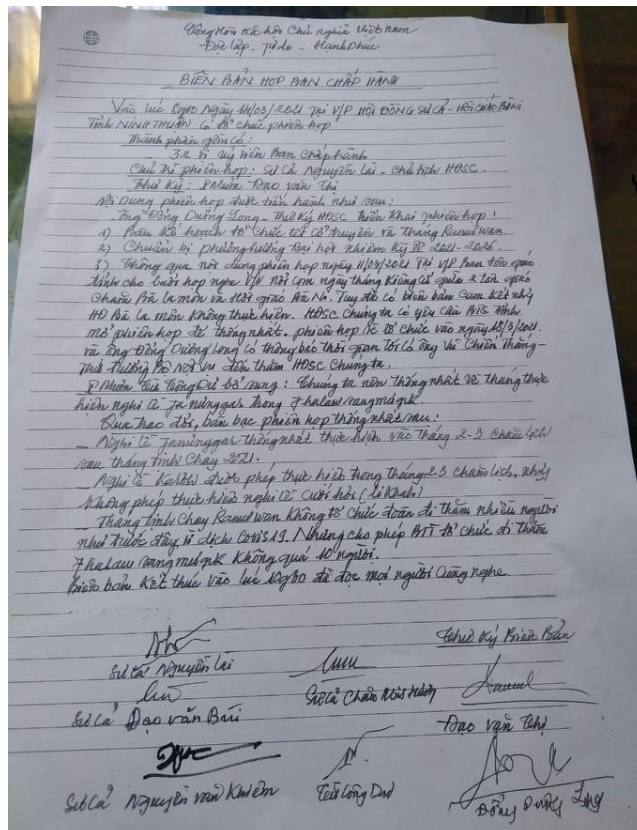 Cộng Hòa Xã hội Chủ nghĩa Việt Nam
Độc lập - Tự do - Hạnh Phúc
BIÊN BẢN HỌP BAN CHẤP HÀNH
Vào lúc ngày /03/2021 Tại V/P HỘI ĐỒNG SƯ CẢ - HỒI GIÁO BÀNI
Tỉnh NINH THUẬN có tổ chức phiên họp
Thành phần gồm có:
32 vị ủy viên Ban chấp hành
Chủ trì phiên họp: Sư Cả Nguyễn Lài - Chủ tịch HĐSC.
Thư Ký: Đạo Văn Thị
Nội Dung phiên họp được tiến hành như sau:
- Ông Đồng Dường Long - Thư Ký HĐSC triển khai phiên họp:
1) Bàn Kế hoạch tổ chức tết cổ truyền và tháng Ramưwan.
2) Chuẩn bị phương hướng Đại hội nhiệm Kỳ IV 2021-2026.
3) Thông qua nội dung phiên họp ngày 11/03/2021 Tại V/P Ban tôn giáo
tỉnh cho buổi họp nghe V/V ngày tháng Kiêng cữ giữa 2 tôn giáo
Chăm Bà la môn và Hồi giáo Bà Ni. Tuy đã có biên bản cam kết nhg
HĐ Bà la môn không thực hiện. HĐSC Chúng ta có yêu cầu
mở phiên họp để thống nhất. phiên họp tổ chức vào ngày 18/3/2021.
và ông Đồng Dường Long có thông báo thời gian tới có ông Vũ Chiến Thắng -
Thứ trưởng Bộ Nội Vụ đến thăm HĐSC Chúng ta.
bổ sung: Chúng ta nên thống nhất về tháng thực
hiện nghi lễ Janưnggar trong 7 halaw sang mưgik.
Qua trao đổi, bàn bạc phiên họp thống nhất sau:
- Nghi lễ Janưnggar thống nhất thực hiện vào tháng 2-3 chăm lịch
sau tháng tịnh Chay 2021.
- Nghi lễ Karơh được phép thực hiện trong tháng 2-3 chăm lịch, nhưng
không phép thực hiện nghi lễ cưới hỏi (Likhah)
- Tháng tịnh Chay Ramưwan không tổ chức đoàn đi thăm nhiều người
như trước đây vì dịch Covid 19. Nhưng cho phép BTT tổ chức đi thăm
7 halaw sang mưgik không quá 10 người.
Biên bản Kết thúc vào lúc 10g30 đã đọc mọi người cùng nghe.
Thư Ký Biên Bản
Sư Cả Nguyễn Lài
Sư Cả
Sư Cả Đạo Văn Búi
Đạo Văn Thị
Sư Cả Nguyễn Văn Khiêm
Từ Công Dư
Đồng Dường Long